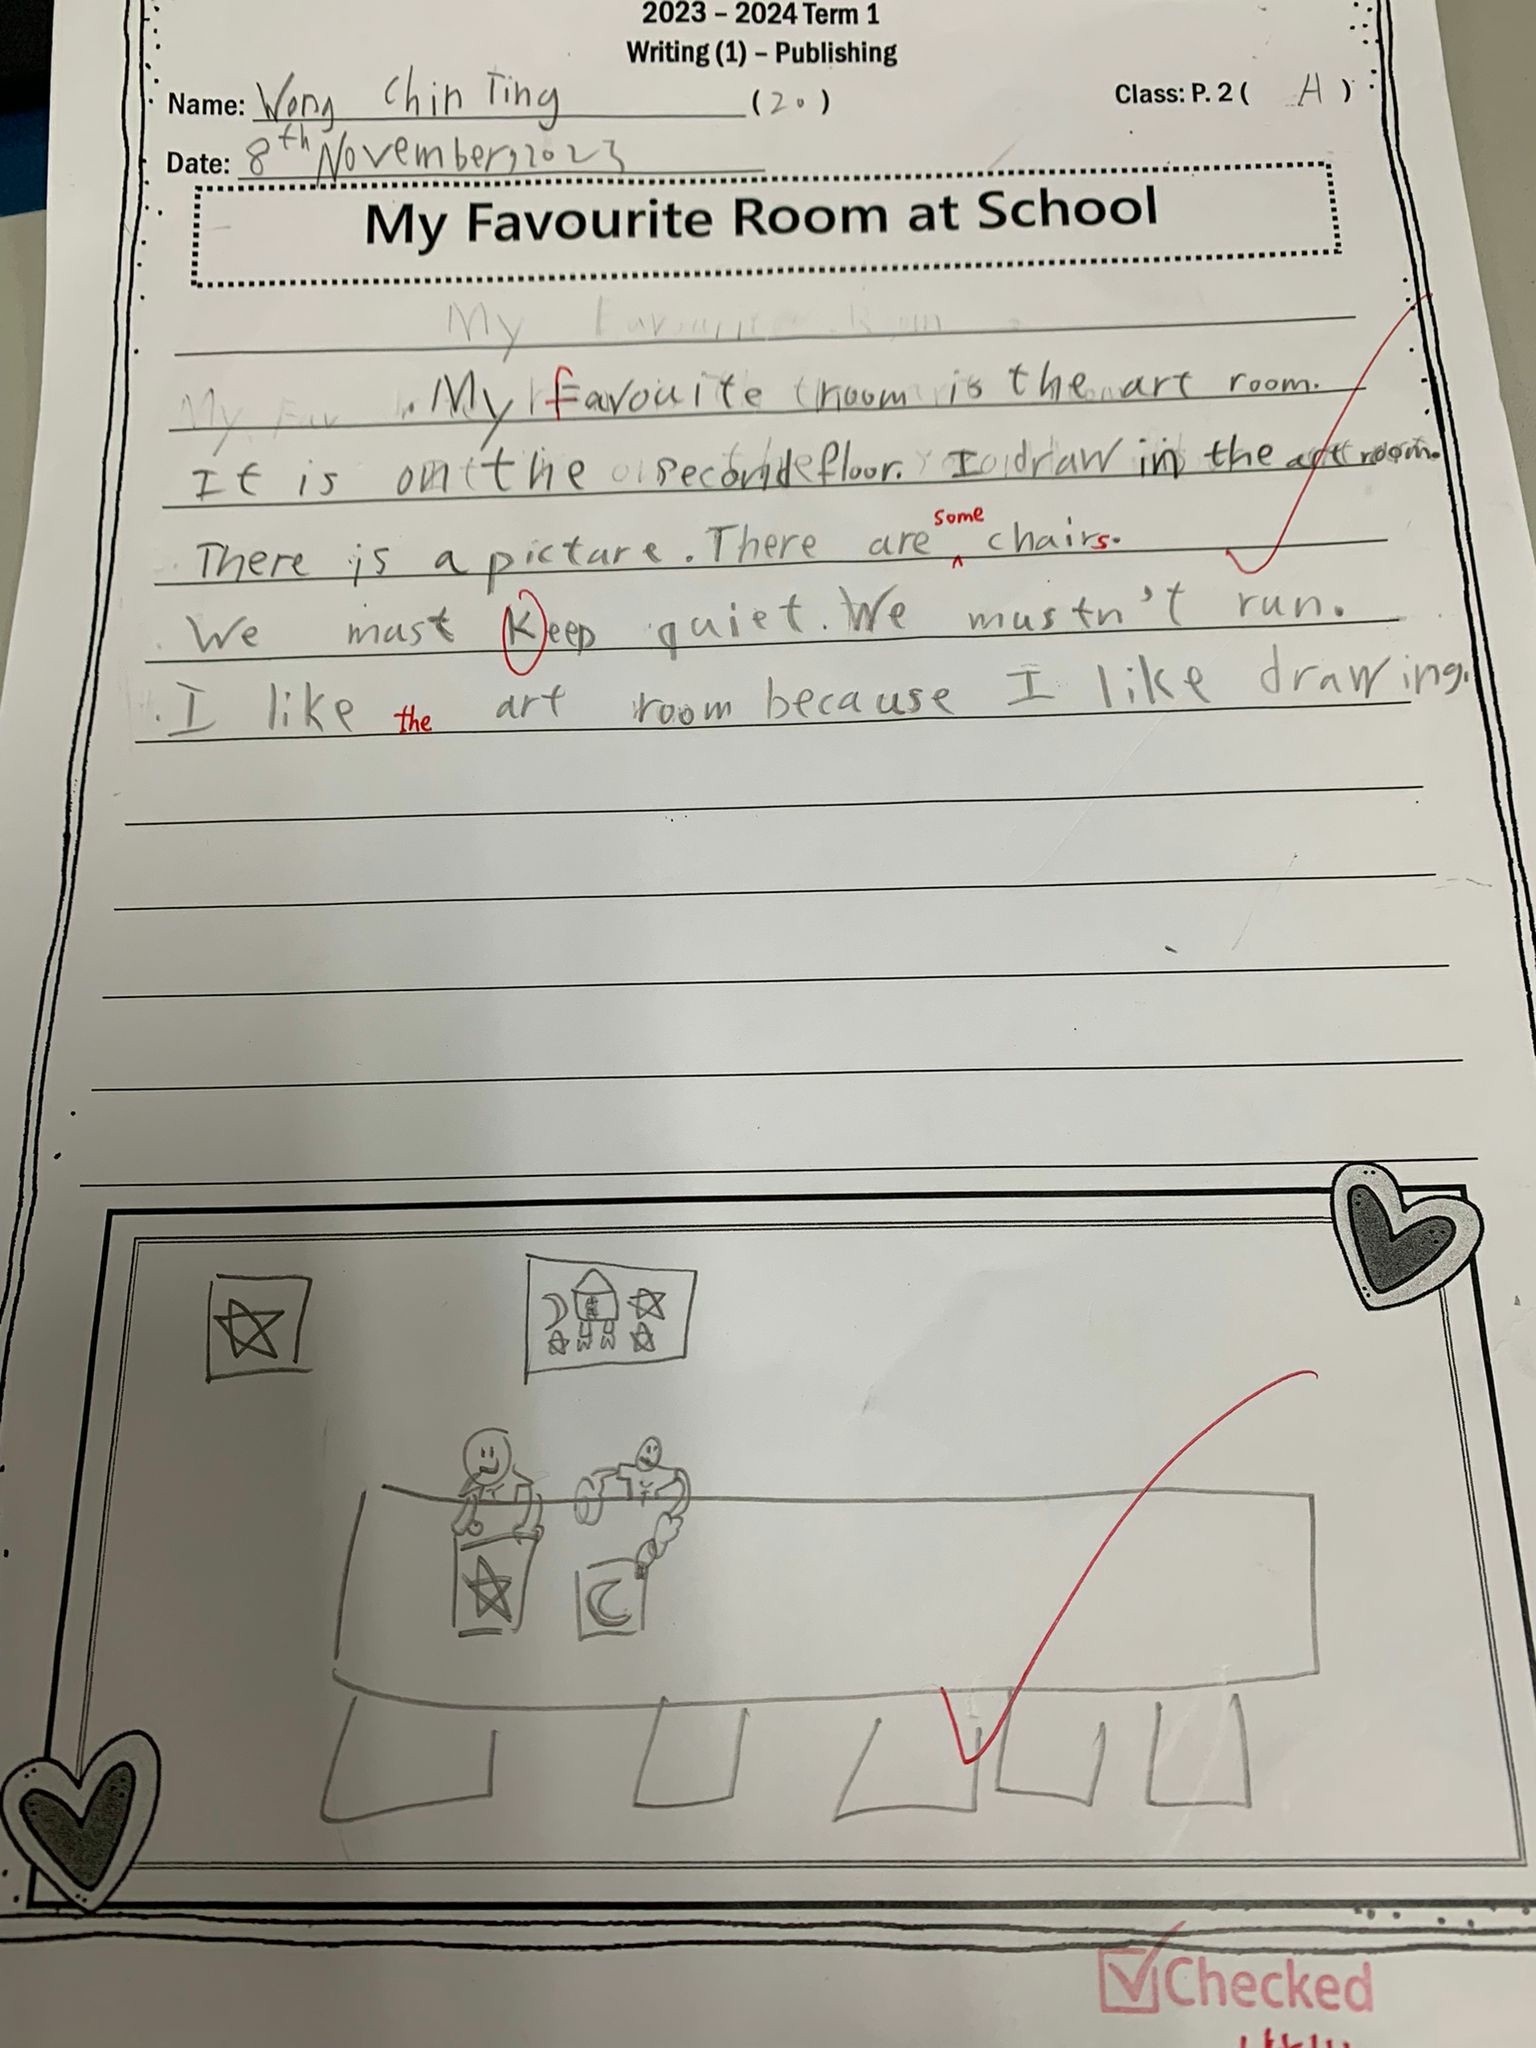 2023 – 2024 Term 1
Writing (1) – Publishing
Name: Wong Chin Ting (20) Class: P. 2 ( A )
Date: 8th November, 2023
My Favourite Room at School
My Favourite Room
My favouite room is the art room.
It is on the second floor. I draw in the art room.
There is a picture. There are some chairs.
We must Keep quiet. We mustn't run.
I like the art room because I like drawing.
Checked